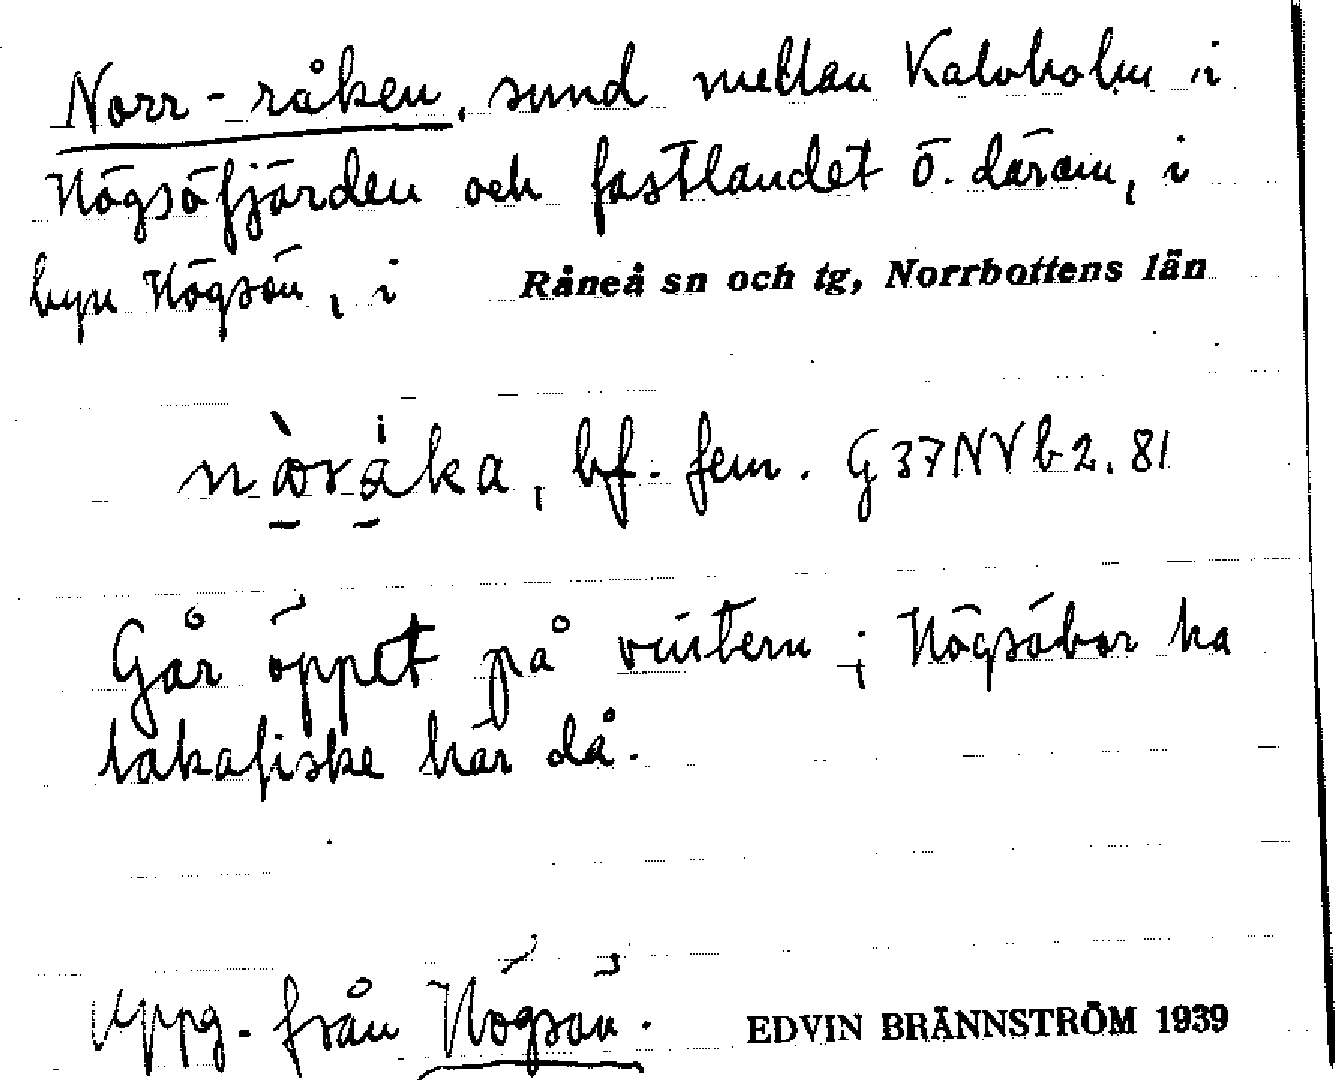 Norr-råken, sund mellan Kalvholm i
Högsöfjärden och fastlandet ö. därom, i
byn Högsön, i Råneå sn och tg, Norrbottens län
bf. fem. G37NVb2.81
Går öppet på vintern; Högsöbor ha
lakafiske här då.
Uppg. från Högsön. EDVIN BRÄNNSTRÖM 1939